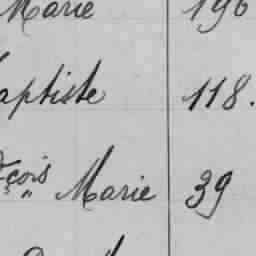 Marie 196
aptiste 118.
çois „ Marie 39